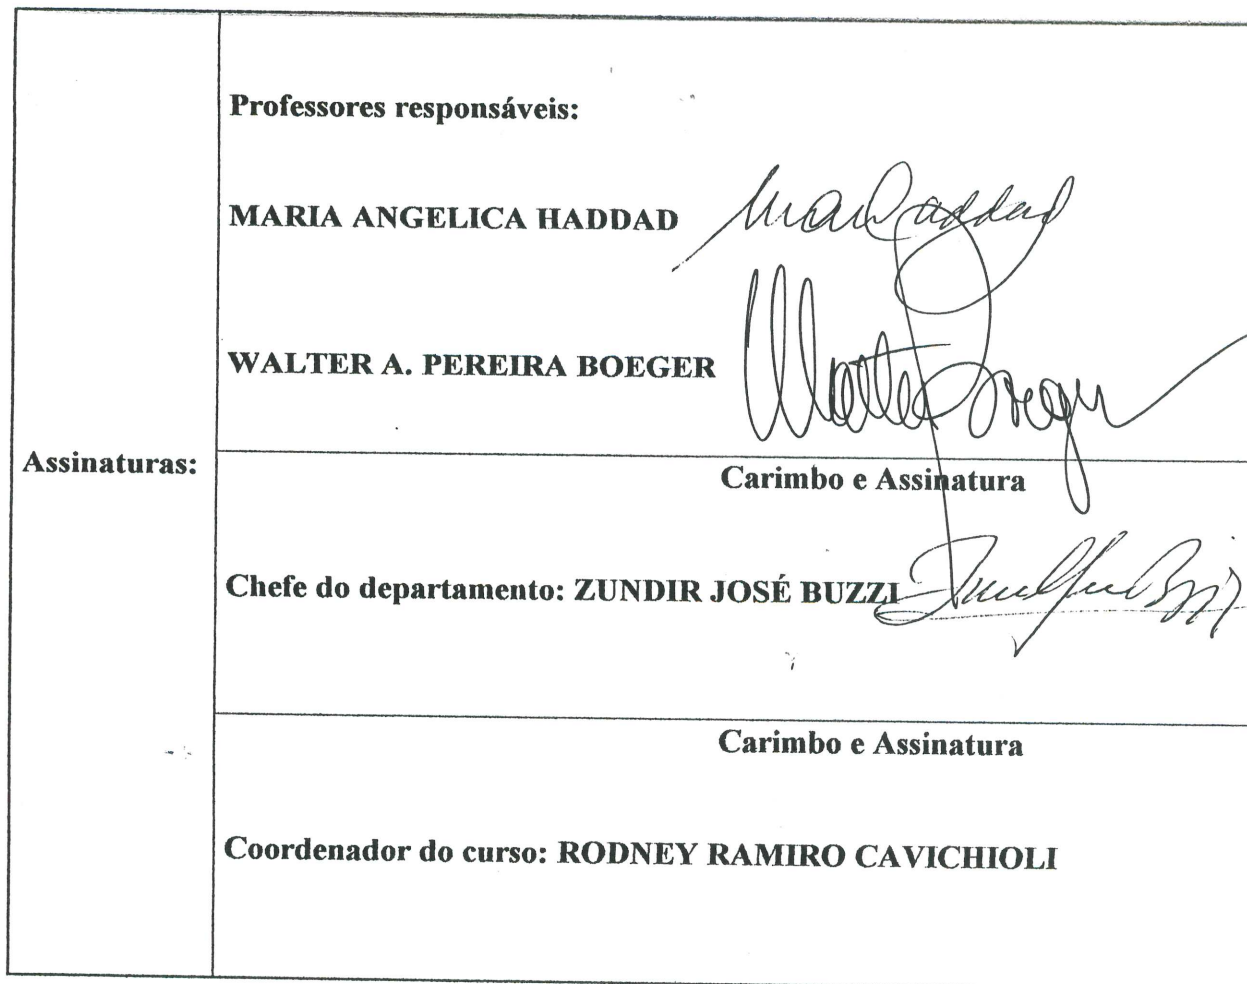 Professores responsáveis:
MARIA ANGELICA HADDAD
WALTER A. PEREIRA BOEGER
Assinaturas:
Carimbo e Assinatura
Chefe do departamento: ZUNDIR JOSÉ BUZZI
Carimbo e Assinatura
Coordenador do curso: RODNEY RAMIRO CAVICHIOLI